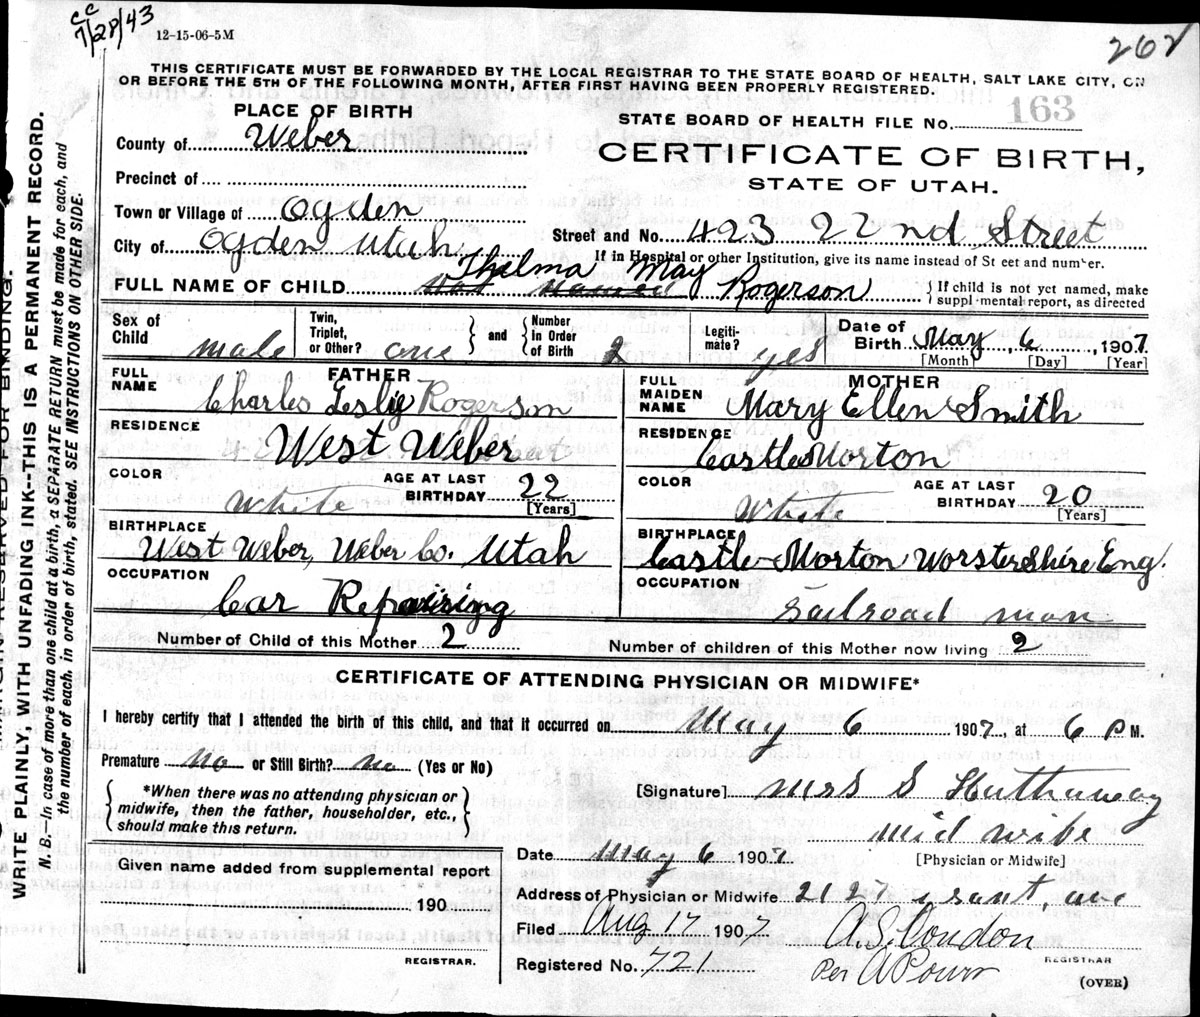 cc
7/28/43
12-15-06-5M
262
THIS CERTIFICATE MUST BE FORWARDED BY THE LOCAL REGISTRAR TO THE STATE BOARD OF HEALTH, SALT LAKE CITY, ON
OR BEFORE THE 5TH OF THE FOLLOWING MONTH, AFTER FIRST HAVING BEEN PROPERLY REGISTERED.
WRITE PLAINLY, WITH UNFADING INK-THIS IS A PERMANENT RECORD.
N. B.—In case of more than one child at a birth, a SEPARATE RETURN must be made for each, and
the number of each, in order of birth, stated. SEE INSTRUCTIONS ON OTHER SIDE.
PLACE OF BIRTH
County of Weber
Precinct of
Town or Village of Ogden
City of Ogden Utah
STATE BOARD OF HEALTH FILE No. 163
CERTIFICATE OF BIRTH,
STATE OF UTAH.
Street and No. 423 22nd Street
If in Hospital or other Institution, give its name instead of St eet and num er.
Thelma May
FULL NAME OF CHILD Not Named Rogerson
If child is not yet named, make
suppl mental report, as directed
Sex of Child male
Twin, Triplet, or Other? one and Number in Order of Birth 2
Legiti-mate? yes
Date of Birth May 6, 1907
[Month] [Day] [Year]
FATHER
FULL NAME Charles Leslie Rogerson
RESIDENCE West Weber
COLOR White
AGE AT LAST BIRTHDAY 22
[Years]
BIRTHPLACE West Weber, Weber Co. Utah
OCCUPATION Car Repairing
MOTHER
FULL MAIDEN NAME Mary Ellen Smith
RESIDENCE Castle Morton
COLOR White
AGE AT LAST BIRTHDAY 20
[Years]
BIRTHPLACE Castle-Morton WorsterShire Eng.
OCCUPATION railroad man
Number of Child of this Mother 2
Number of children of this Mother now living 2
CERTIFICATE OF ATTENDING PHYSICIAN OR MIDWIFE*
I hereby certify that I attended the birth of this child, and that it occurred on May 6 1907, at 6 P M.
Premature no or Still Birth? no (Yes or No)
*When there was no attending physician or
midwife, then the father, householder, etc.,
should make this return.
[Signature] Mrs S Hathaway
Mid wife
[Physician or Midwife]
Given name added from supplemental report
190
REGISTRAR.
Date May 6 1907
Address of Physician or Midwife 2127 grant, ave
Filed Aug 17 1907
Registered No. 721
A.S. Condon
REGISTRAR
Per
(OVER)